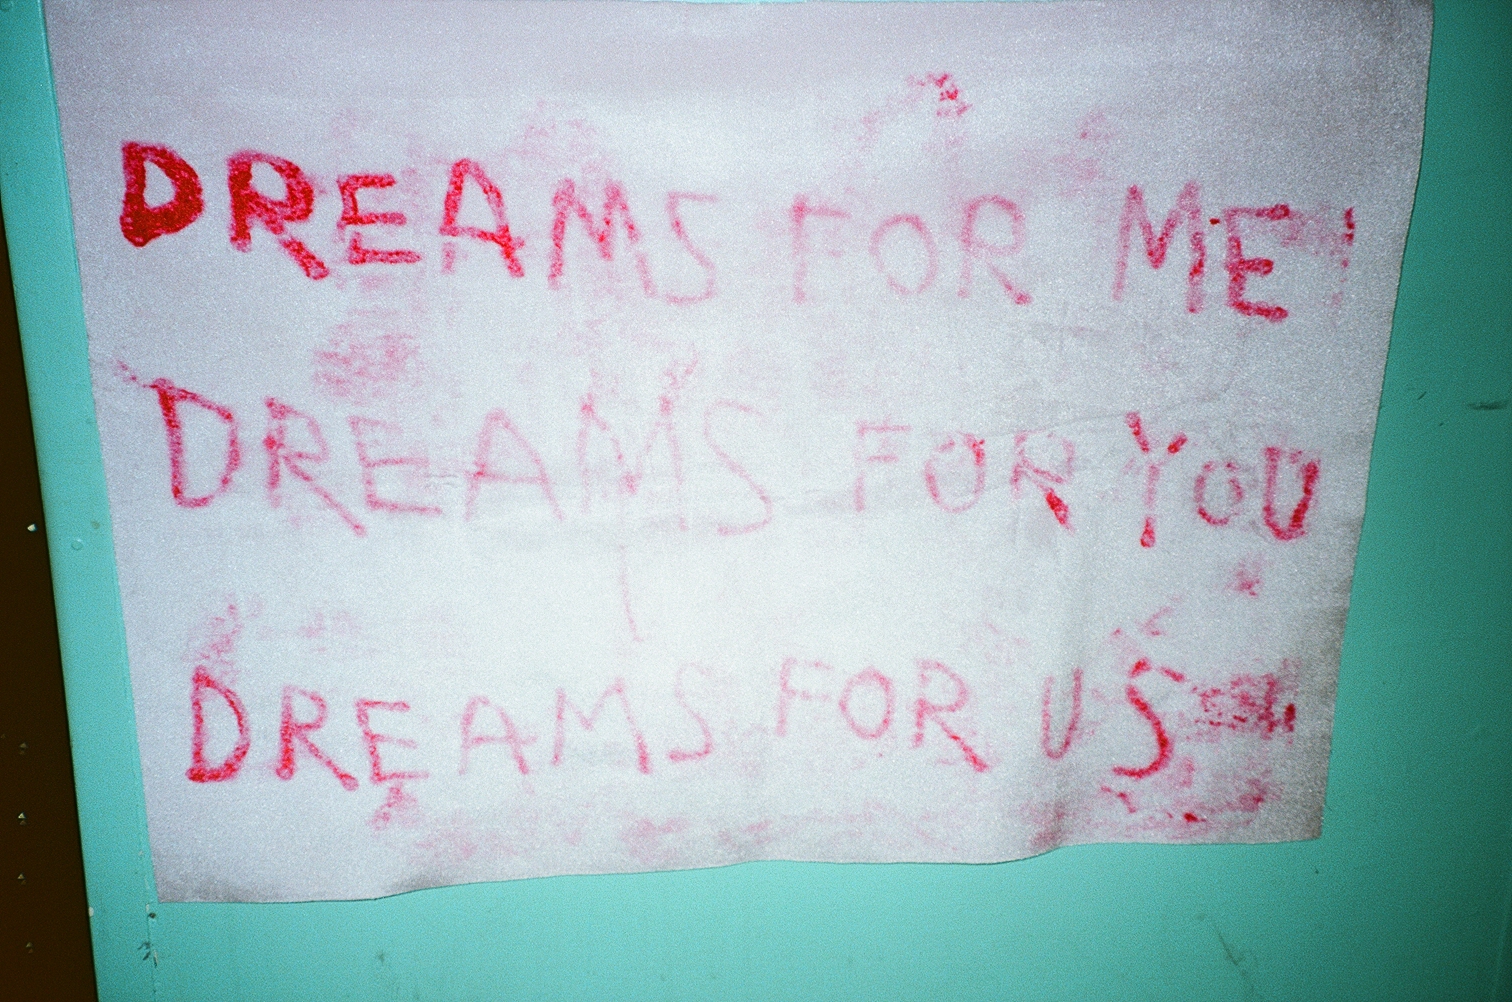 DREAMS FOR ME!
DREAMS FOR YOU
DREAMS FOR US